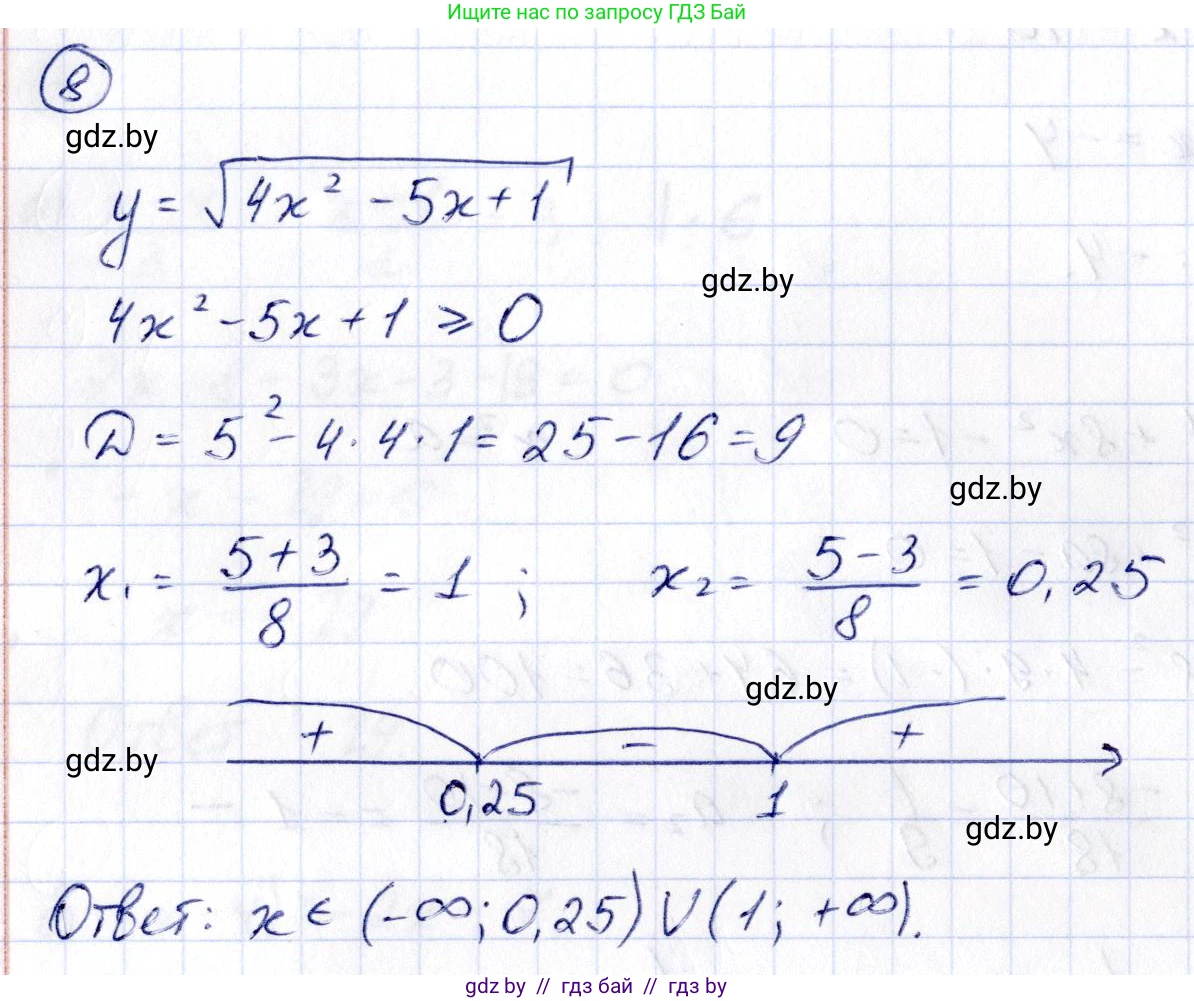 Ищите нас по запросу ГДЗ Бай
8
gdz.by
y = √(4x² - 5x + 1)
gdz.by
4x² - 5x + 1 ⩾ 0
D = 5² - 4 · 4 · 1 = 25 - 16 = 9
gdz.by
x₁ = (5 + 3)/8 = 1 ; x₂ = (5 - 3)/8 = 0,25
gdz.by
+ - +
gdz.by
0,25 1
gdz.by
Ответ: x ∈ (-∞; 0,25) ∪ (1; +∞).
gdz.by // гдз бай // gdz by